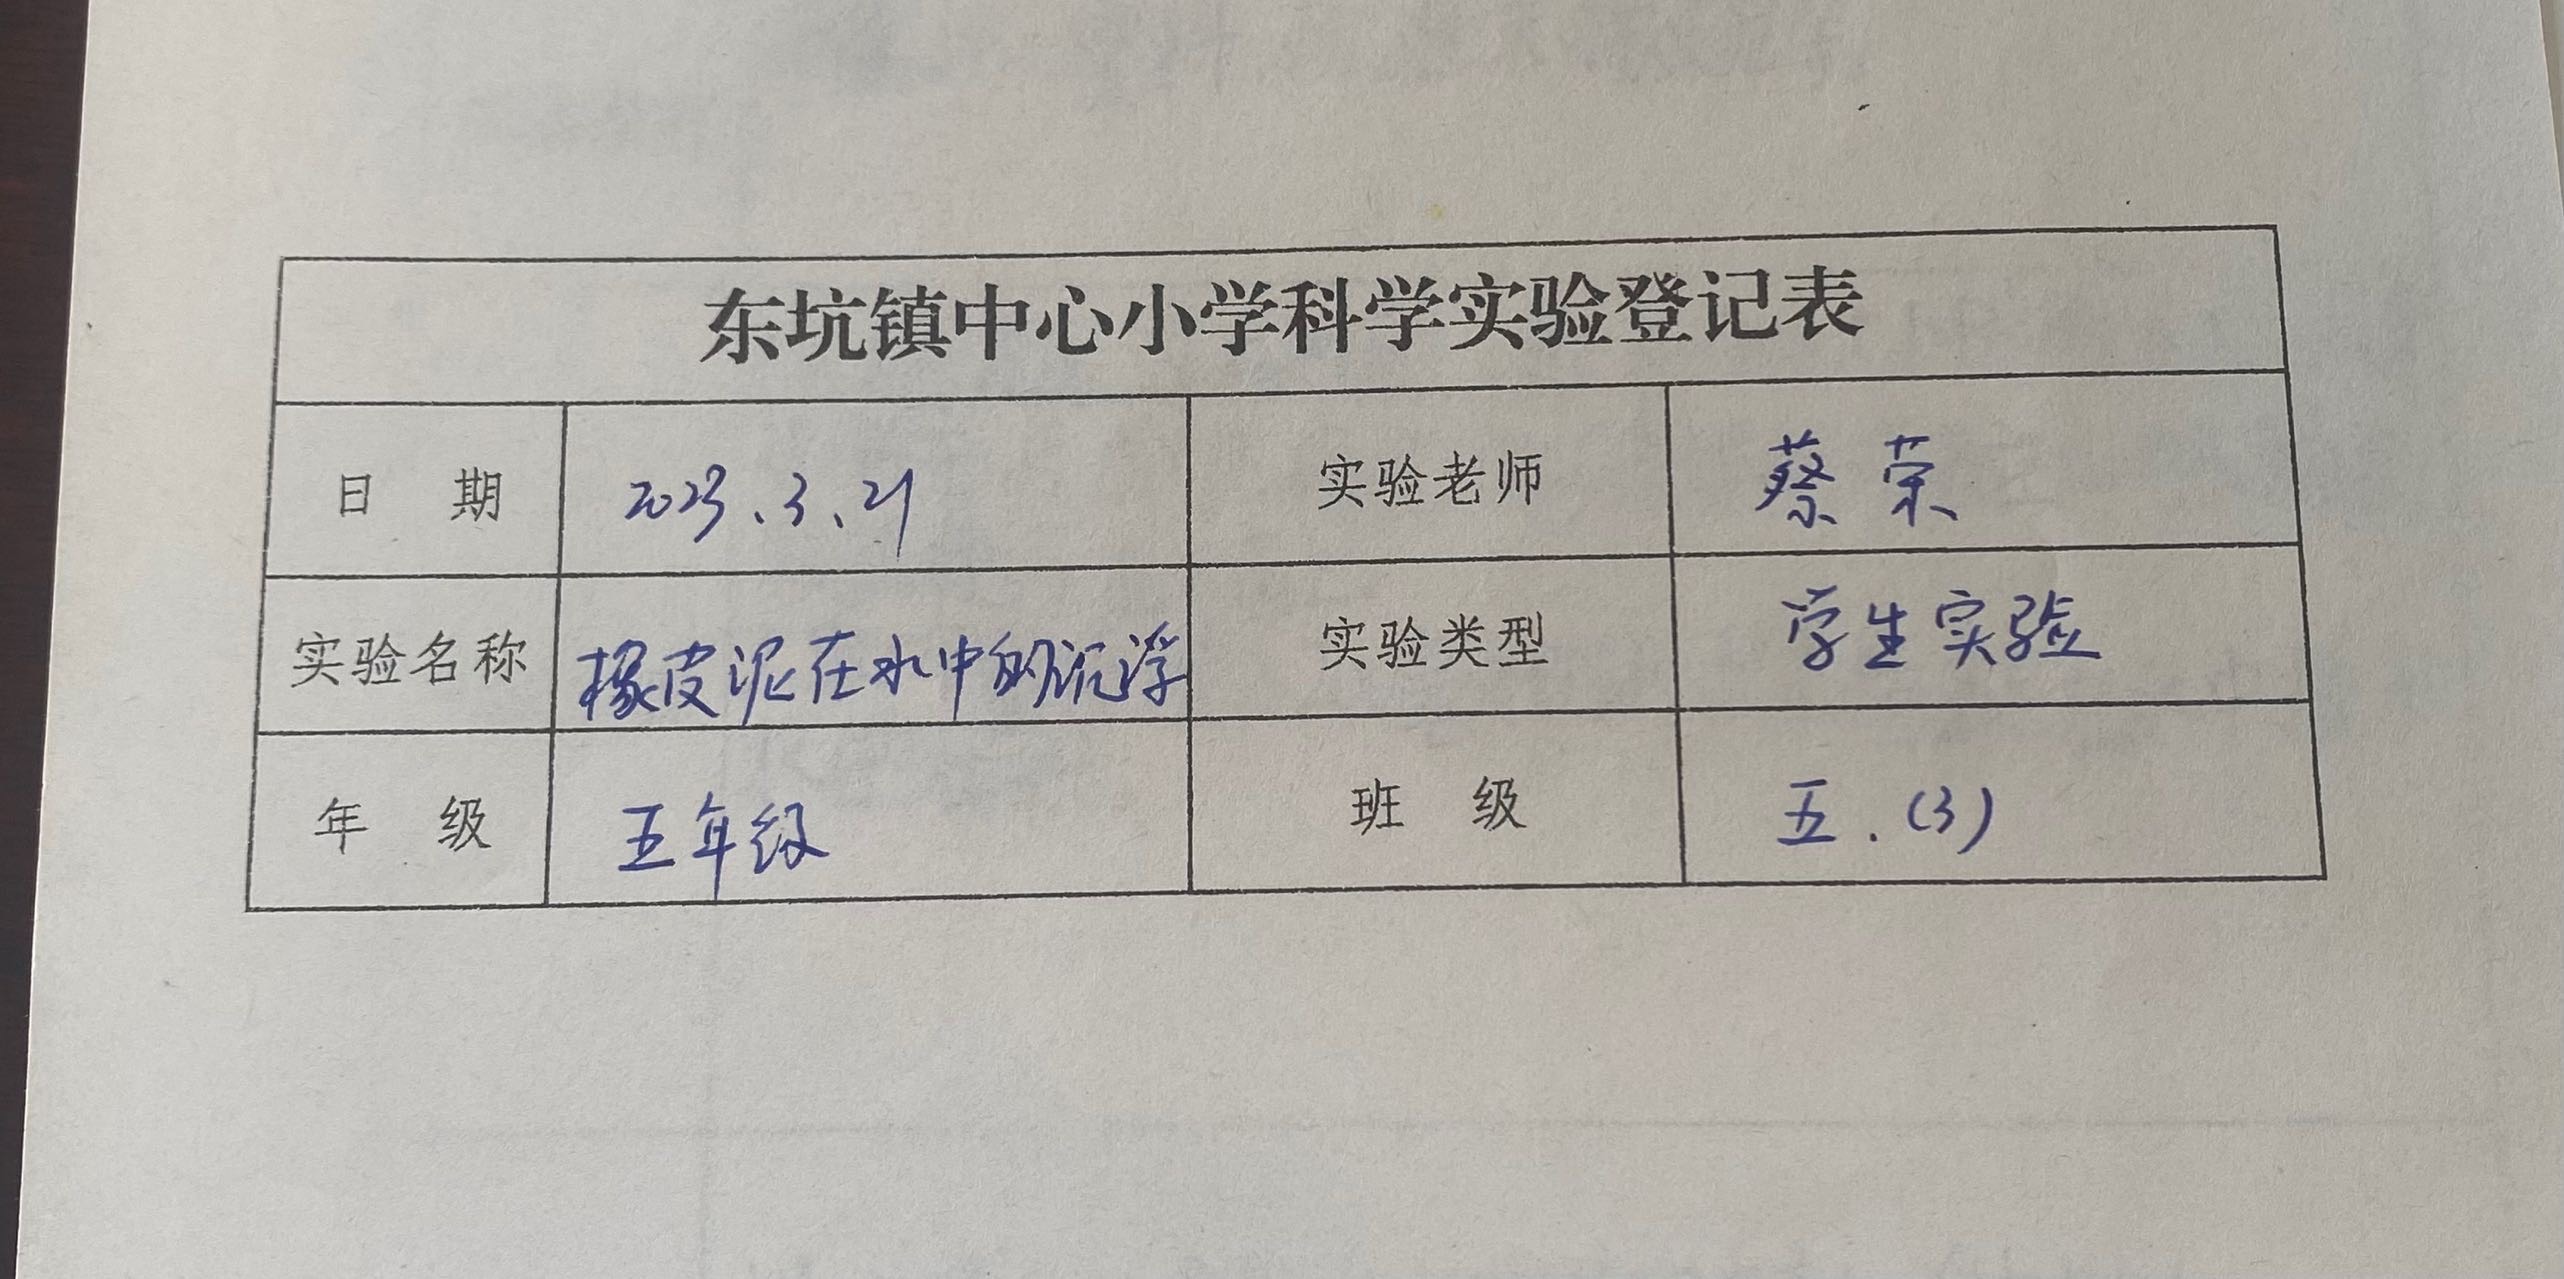 东坑镇中心小学科学实验登记表
日 期 2023、3、21 实验老师 蔡荣
实验名称 橡皮泥在水中的沉浮 实验类型 学生实验
年 级 五年级 班 级 五.(3)